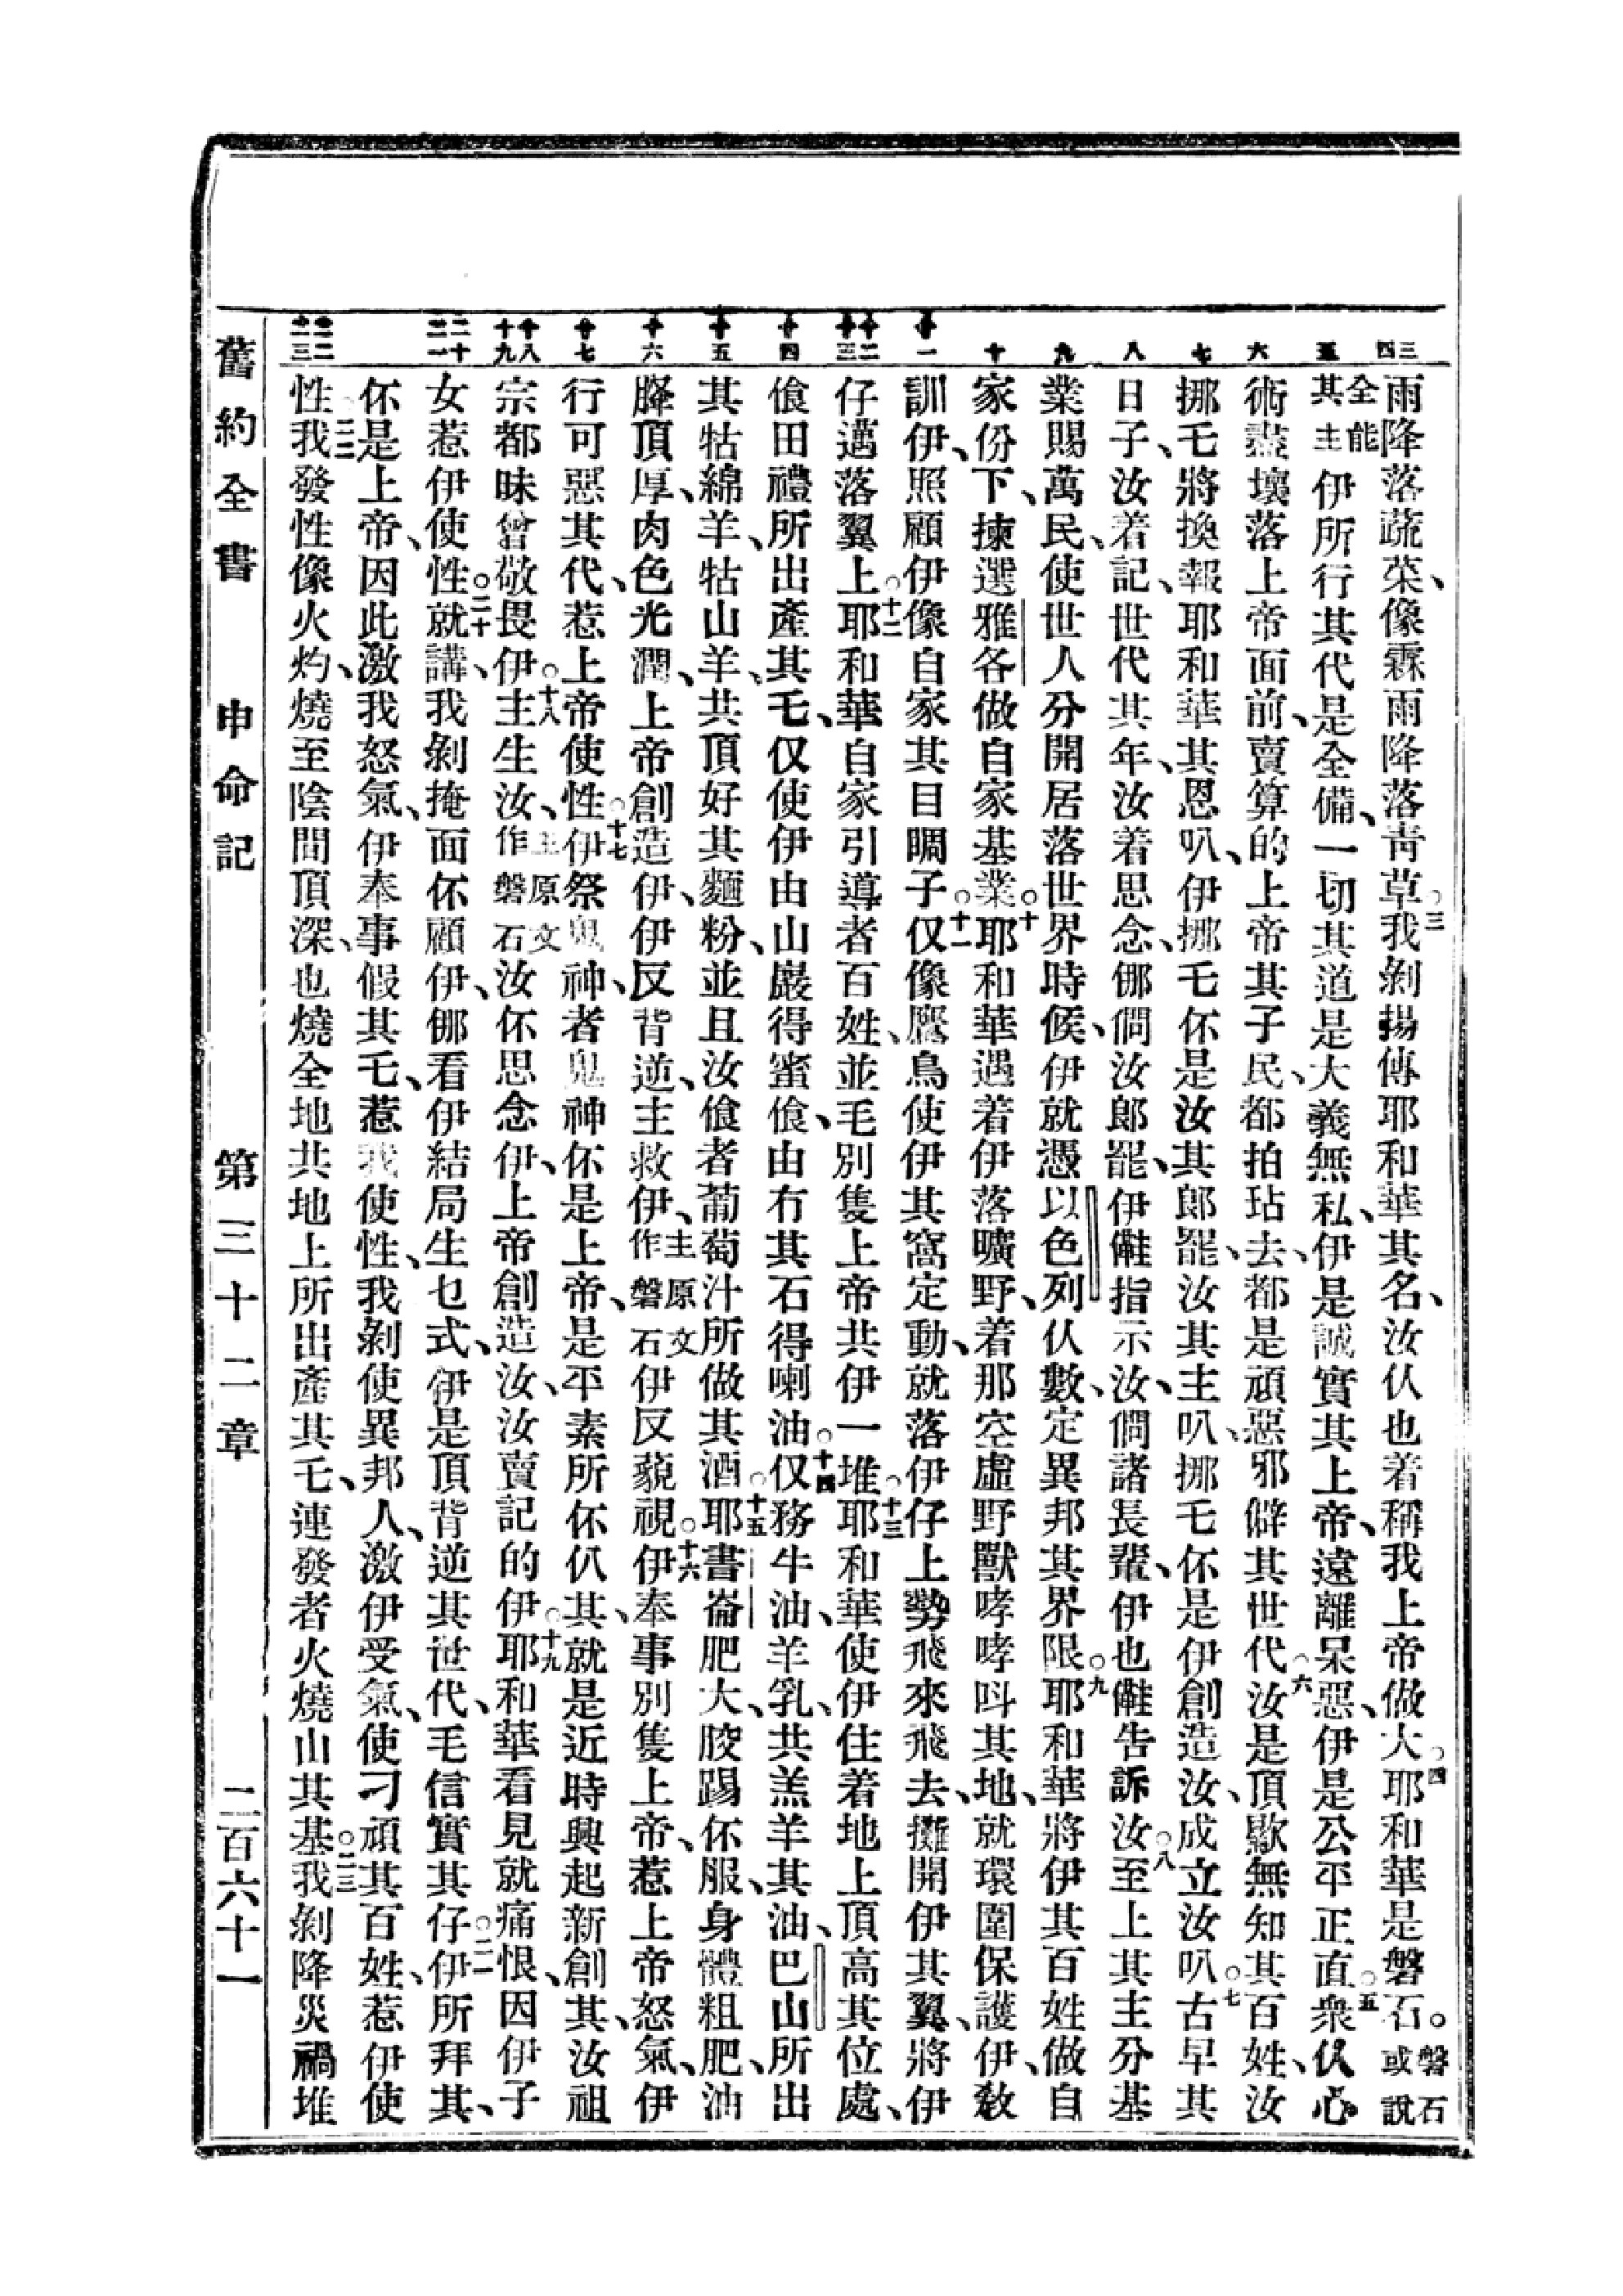 三 四 五 六 七 八 九 十 十一 十二 十三 十四 十五 十六 十七 十八 十九 二十 二一 二二 二三
雨降落蔬菜、像霖雨降落靑草。三我剝揚傳耶和華其名、汝仈也着稱我上帝做大。四耶和華是磐石。磐石或說
全能其主伊所行其代是全備、一切其道是大義無私、伊是誠實其上帝、遠離呆惡伊是公平正直。五衆仈心
術盡壞落上帝面前、賣算的上帝其子民、都拍玷去、都是頑惡邪僻其世代。六汝是頂歇無知其百姓、汝
挪乇將換報耶和華其恩叭、伊挪乇伓是汝其郞罷、汝其主叭、挪乇伓是伊創造汝、成立汝叭。七古早其
日子、汝着記、世代其年、汝着思念、挪問汝郞罷、伊儺指示汝、問諸長輩、伊也儺告訴汝。八至上其主分基
業賜萬民、使世人分開居落世界時候、伊就憑以色列仈數、定異邦其界限。九耶和華將伊其百姓做自
家份下、揀選雅各做自家基業。十耶和華遇着伊落曠野、着那空虛野獸哮哮呌其地、就環圍保護伊、敎
訓伊、照顧伊像自家其目睭子。十一仅像鷹鳥使伊其窩定動、就落伊仔上勢飛來飛去、攤開伊其翼、將伊
仔邁落翼上。十二耶和華自家引導者百姓、並毛別隻上帝共伊一堆。十三耶和華使伊住着地上頂高其位處、
飡田禮所出產其乇、仅使伊由山巖得蜜飡、由冇其石得喇油。十四仅務牛油、羊乳、共羔羊其油、巴山所出
其牯綿羊、牯山羊、共頂好其麵粉、並且汝飡者葡萄汁所做其酒。十五耶書崙肥大、腔踢伓服、身體粗肥、油
膟頂厚、肉色光潤、上帝創造伊、伊反背逆、主救伊、主原文作磐石伊反藐視。十六伊奉事別隻上帝、惹上帝怒氣、伊
行可惡其代、惹上帝使性。十七伊祭鬼神、者鬼神伓是上帝、是平素所伓仈其、就是近時興起新創其、汝祖
宗都昧曾敬畏伊。十八主生汝、主原文作磐石汝伓思念伊、上帝創造汝、汝賣記的伊。十九耶和華看見就痛恨、因伊子
女惹伊使性。二十就講、我剝掩面伓顧伊、挪看伊結局生乜式、伊是頂背逆其世代、毛信實其仔。二一伊所拜其、
伓是上帝、因此激我怒氣、伊奉事假其乇、惹我使性、我剝使異邦人、激伊受氣、使刁頑其百姓、惹伊使
性。二二我發性像火灼、燒至陰間頂深、也燒全地共地上所出產其乇、連發者火燒山其基。二三我剝降災禍堆
舊約全書 申命記 第三十二章 二百六十一